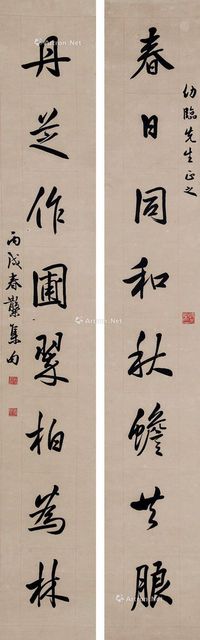 幼臨先生正之
春日同和秋蟾共朖
丹芝作圃翠柏為林
丙戌春集句
Artron.Net
Artron.Net